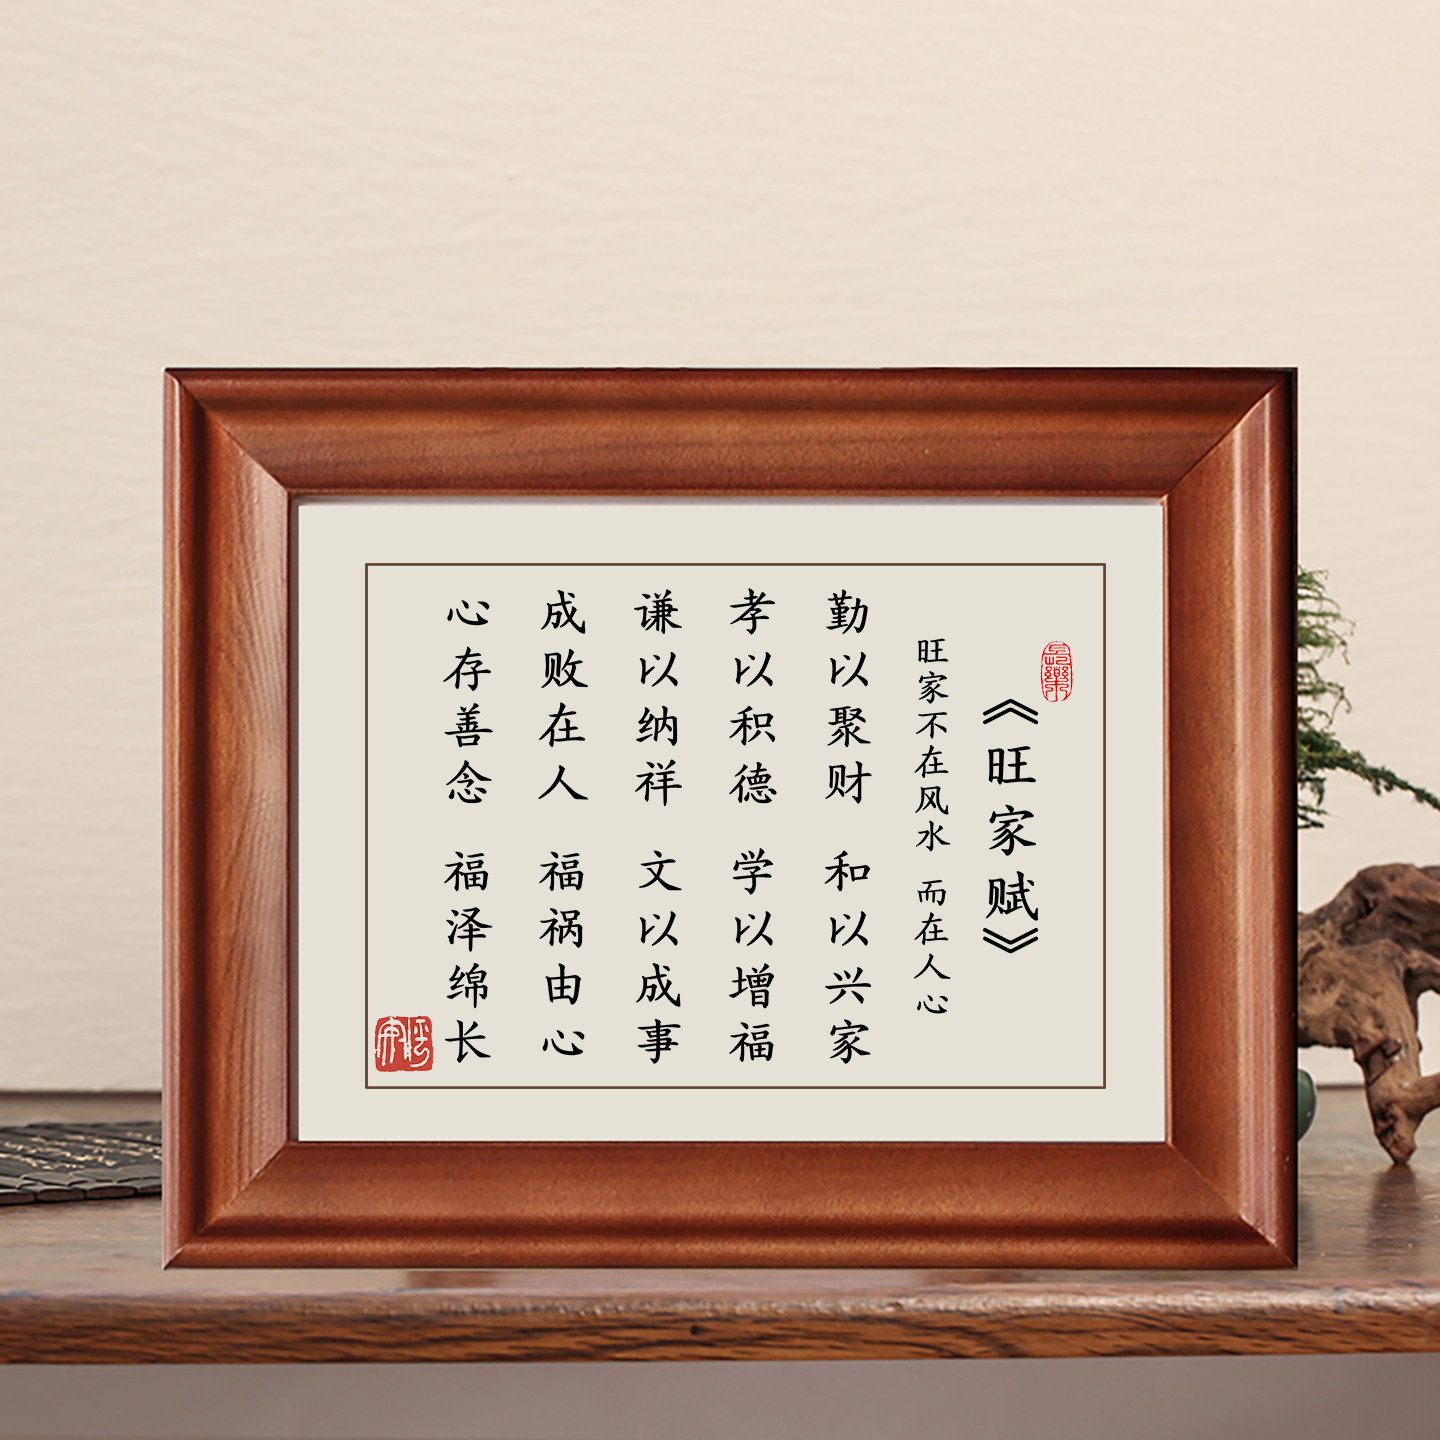 《旺家赋》
旺家不在风水 而在人心
勤以聚财 和以兴家
孝以积德 学以增福
谦以纳祥 文以成事
成败在人 福祸由心
心存善念 福泽绵长